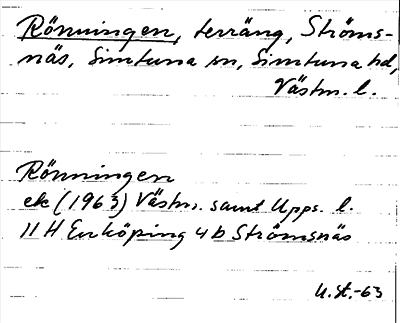 Rönningen, terräng, Ströms-
näs, Simtuna sn, Simtuna hd,
Västm. l.
Rönningen
ek (1963) Västm. samt Upps. l.
11 H Enköping 4 b Strömsnäs
U.St.-63